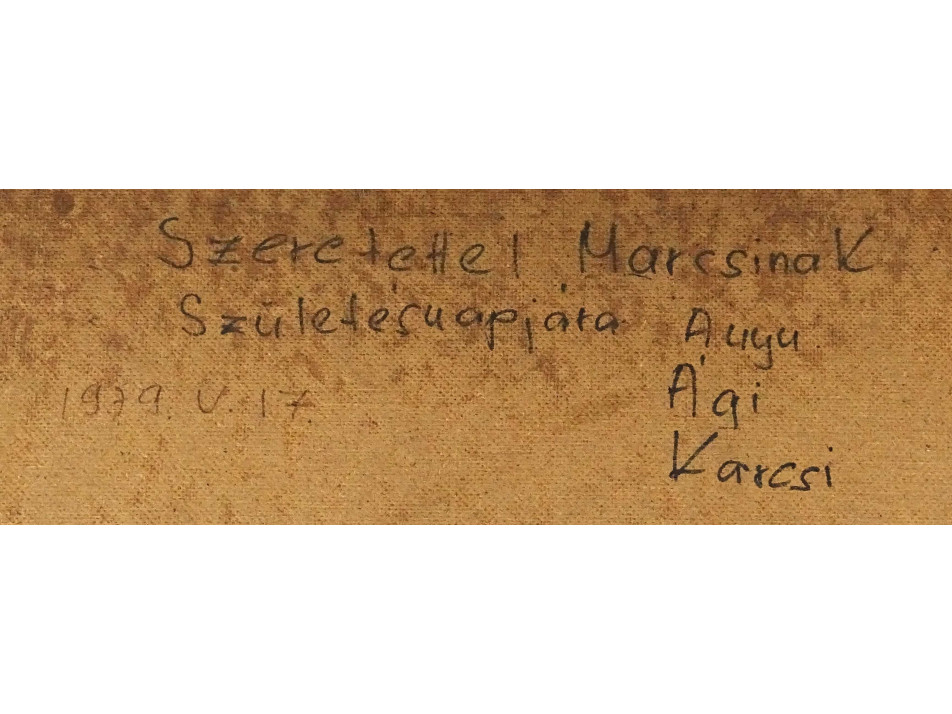 Szeretettel Marcsinak
Születésnapjára Anyu
Ági
Karcsi
1979. V. 17